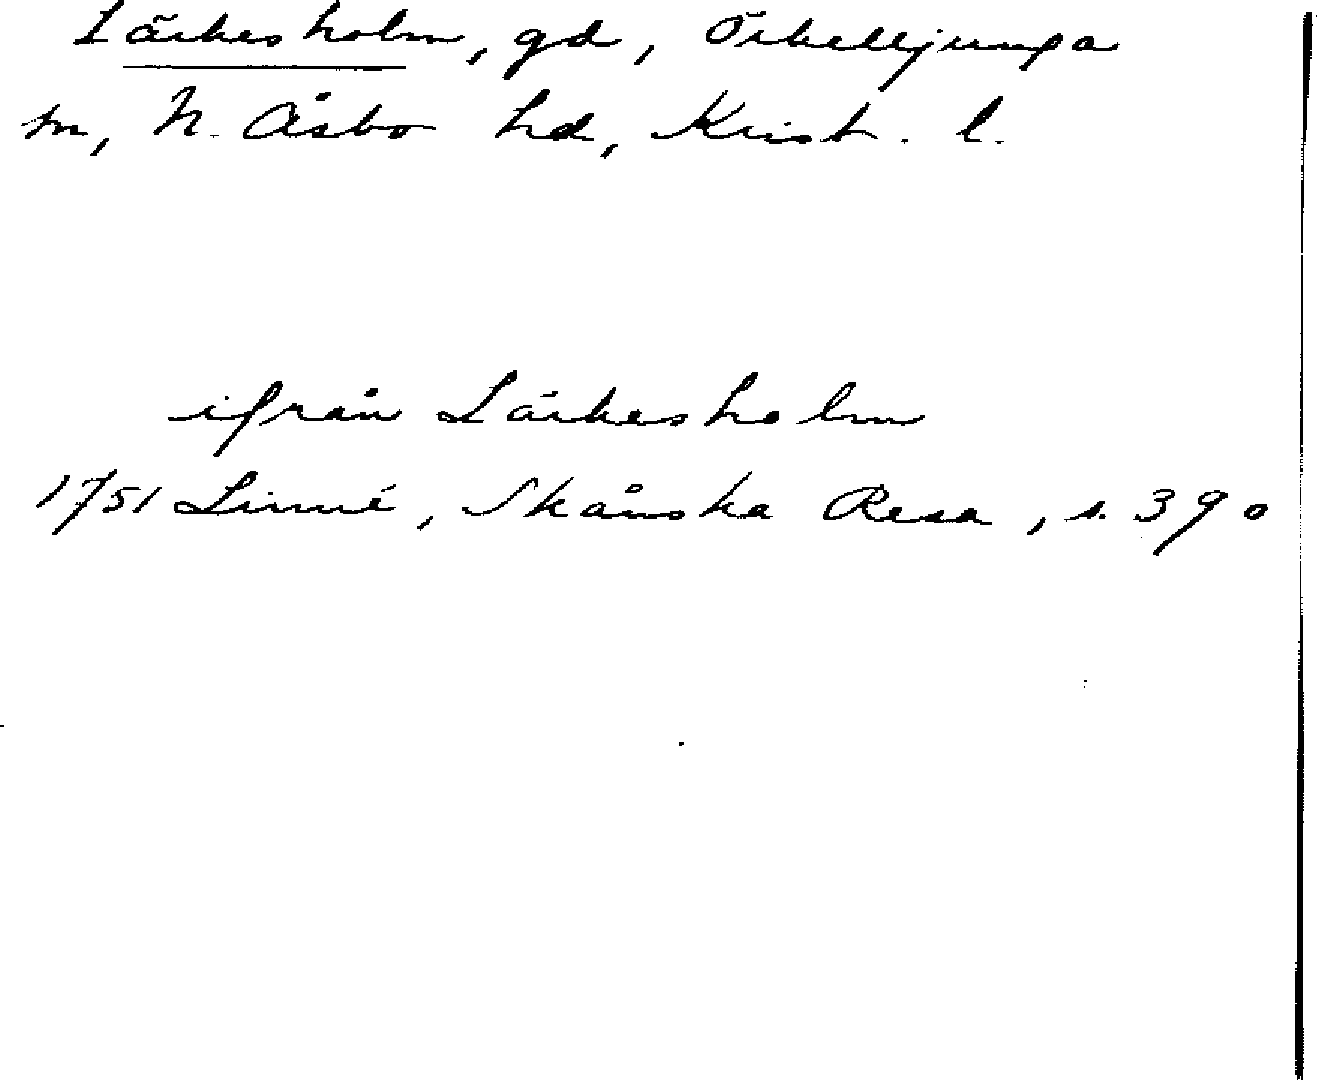 Lärkesholm, gd, Örkelljunga
sn, N. Åsbo hd, Krist. l.
ifrån Lärkesholm
1751 Linné, Skånska Resa, s. 390